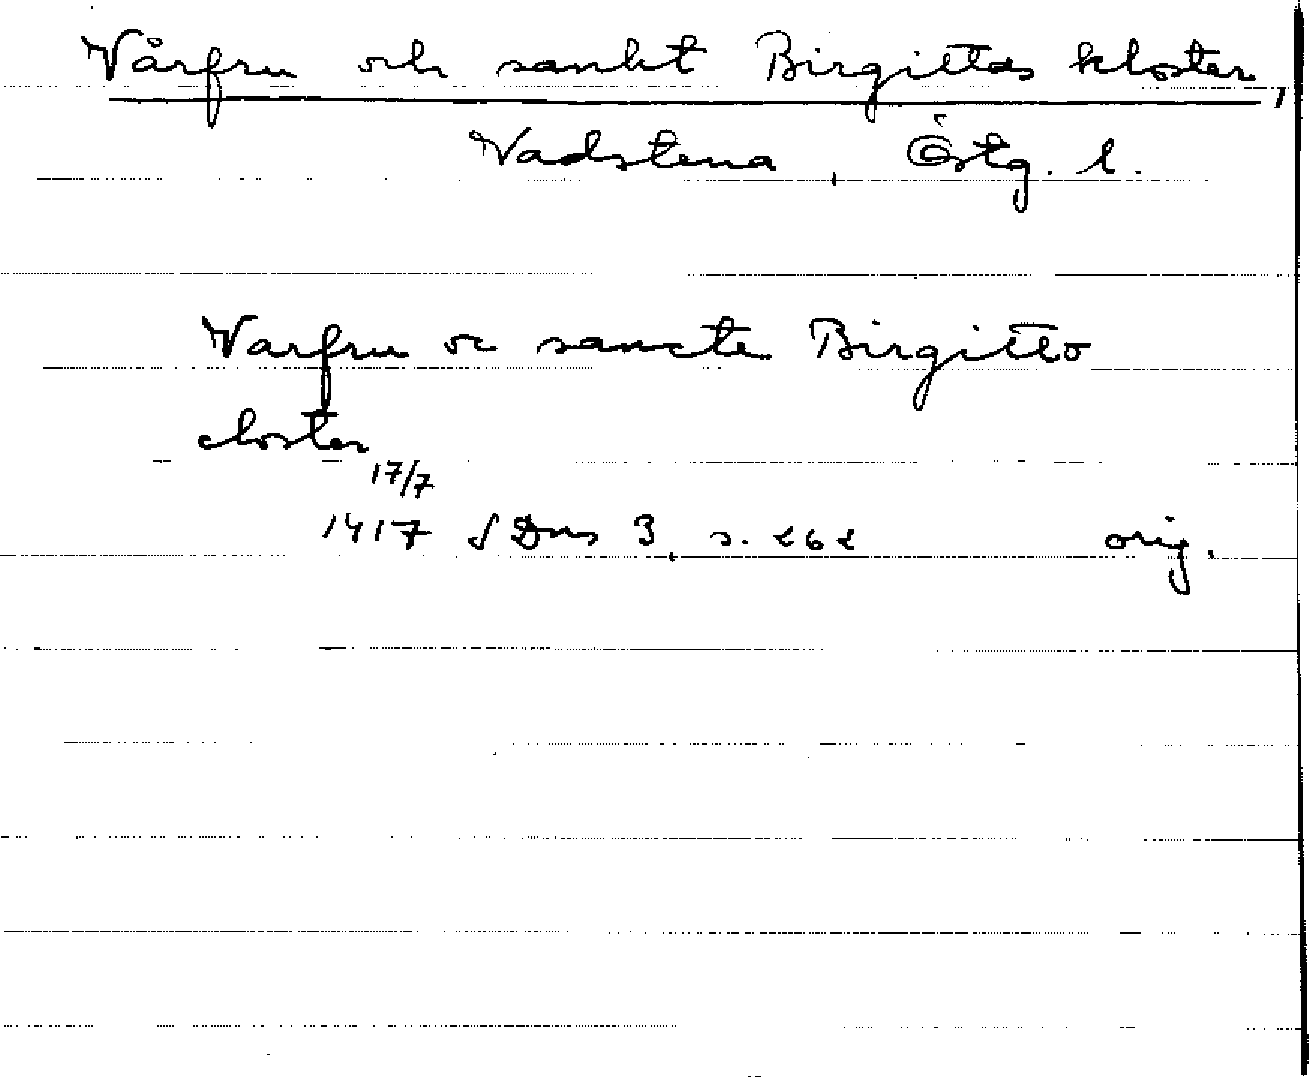 Vårfru och sankt Birgittas kloster,
Vadstena, Östg. l.
Varfru oc sancte Birgitto
closter
17/7
1417 SDns 3, s. 262 orig.